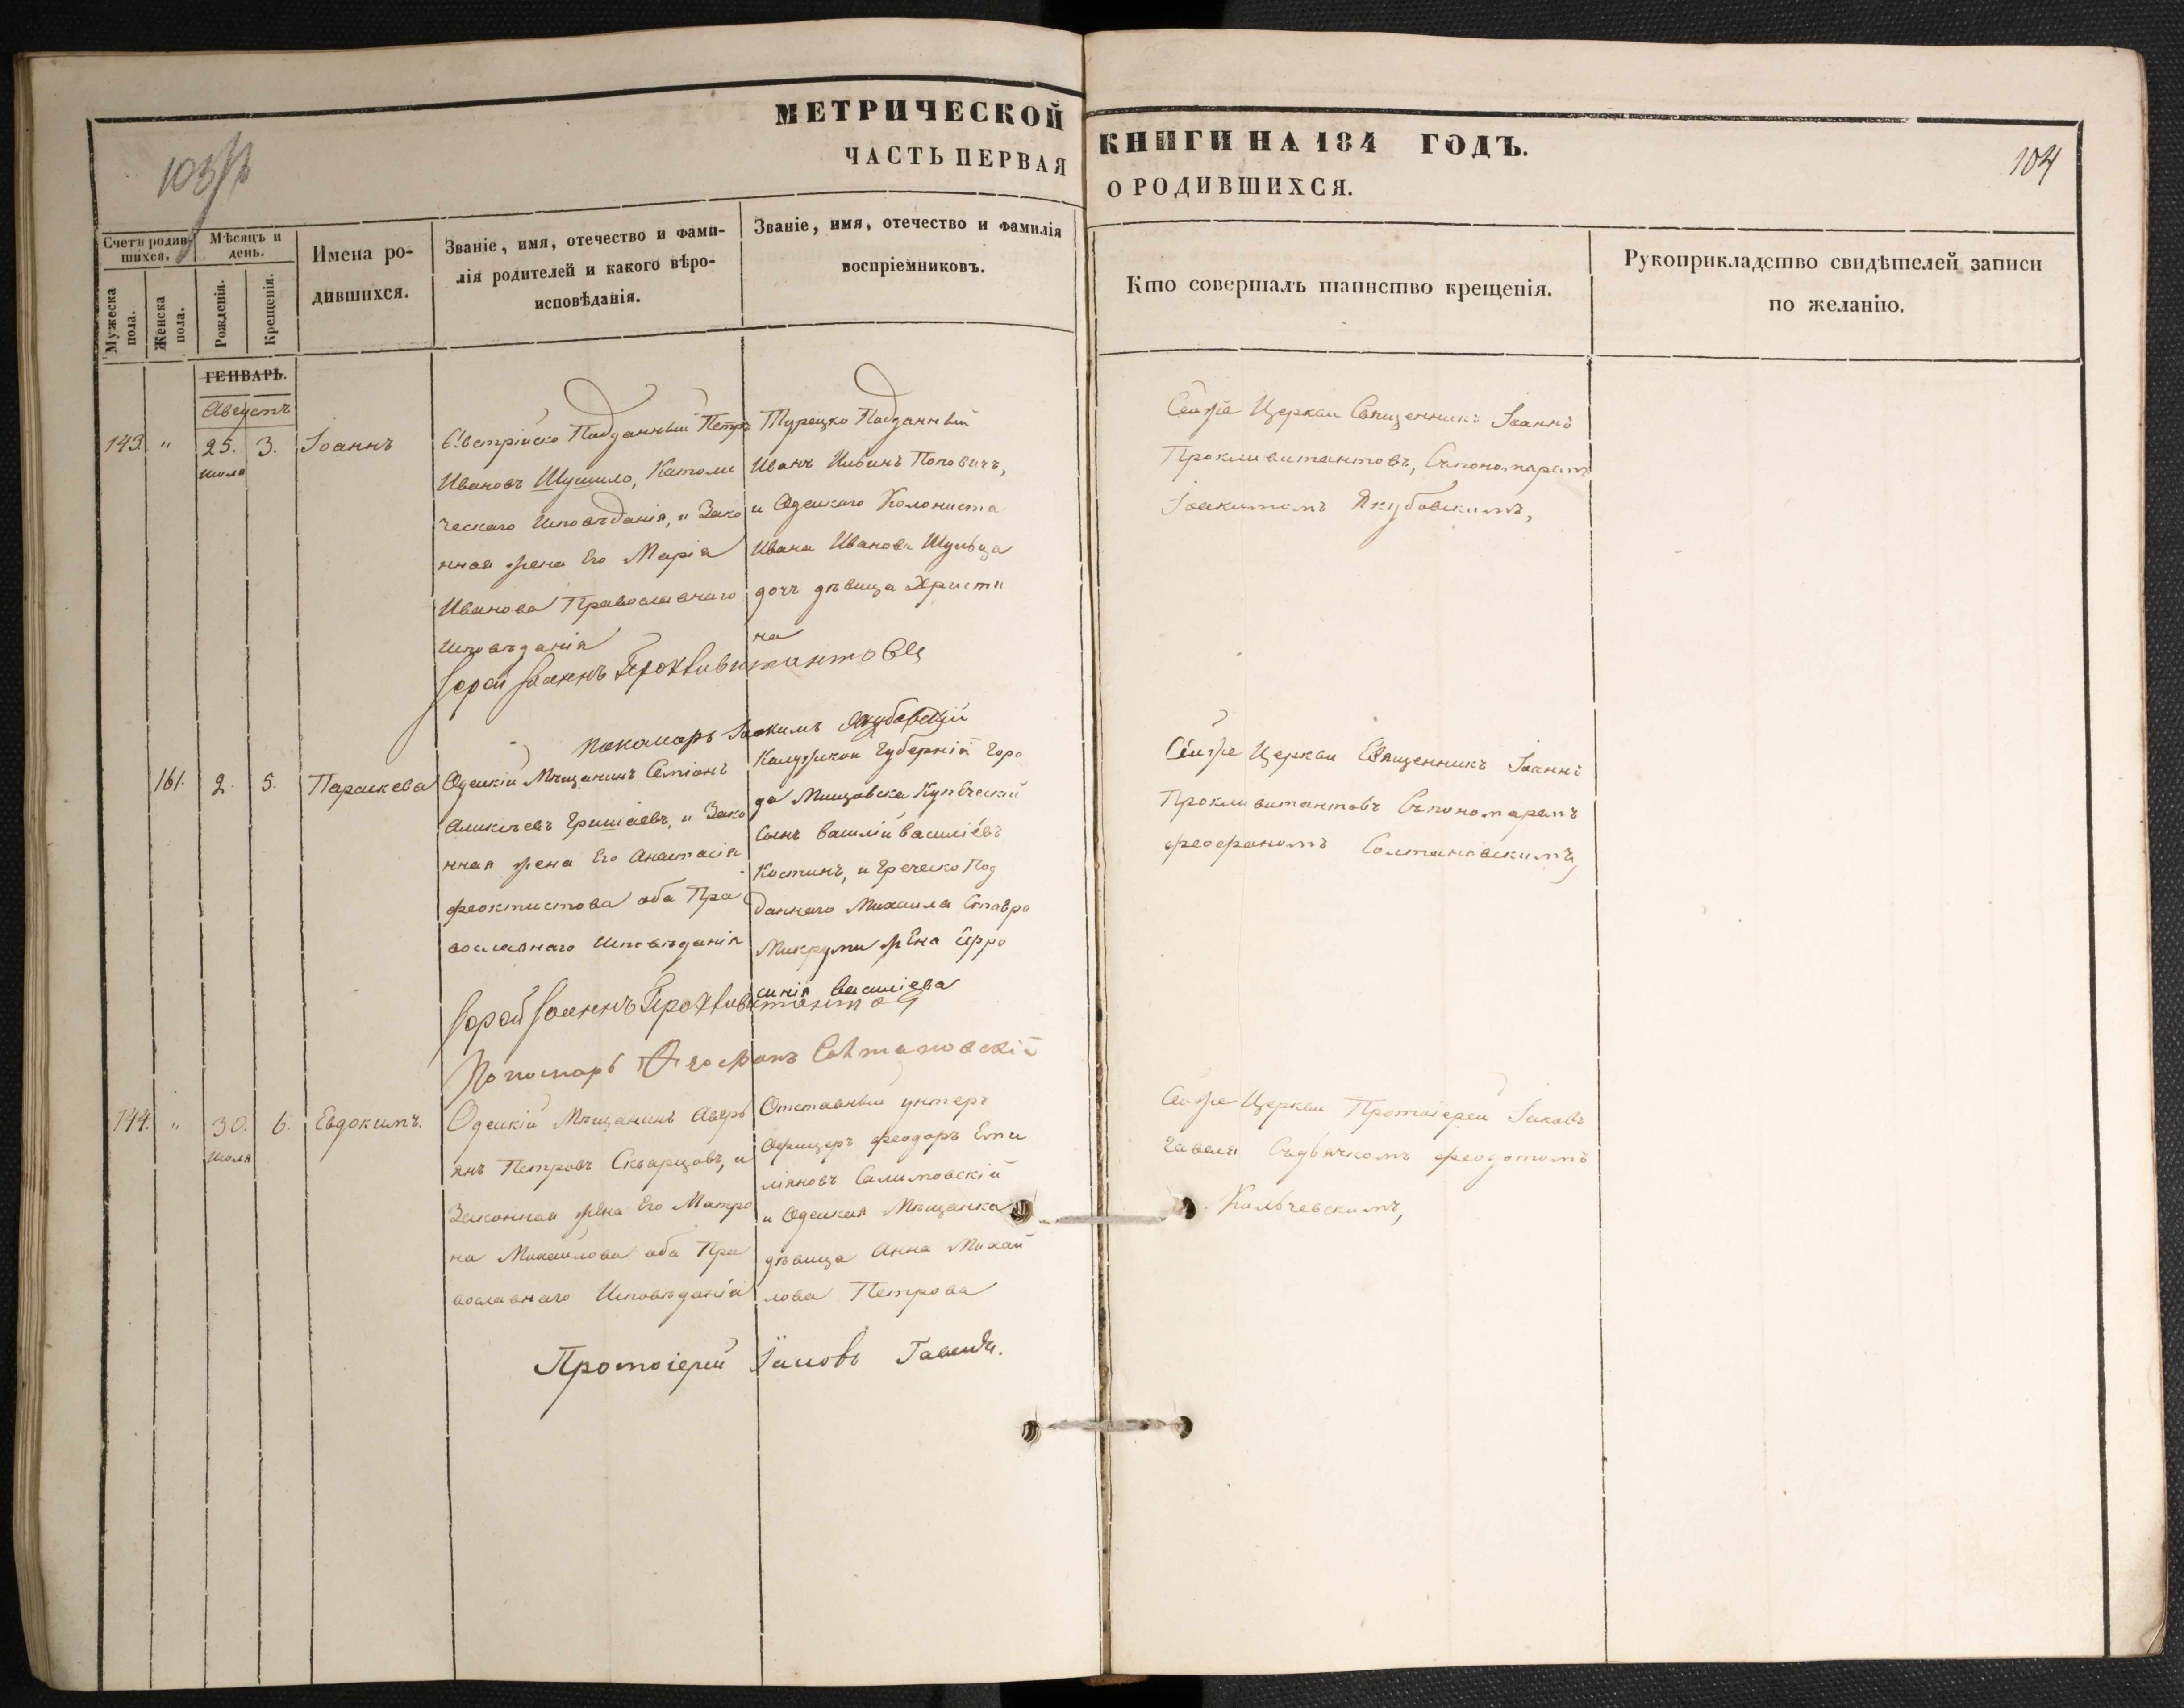 МЕТРИЧЕСКОЙ КНИГИ НА 184 ГОДЪ.
ЧАСТЬ ПЕРВАЯ О РОДИВШИХСЯ.
104
Счетъ родившихся.
Мужеска пола.
Женска пола.
Мѣсяцъ и день.
Рожденія.
Крещенія.
Имена родившихся.
Званіе, имя, отечество и фами-
лія родителей и какого вѣро-
исповѣданія.
Званіе, имя, отечество и фамилія
воспріемниковъ.
Кто совершалъ таинство крещенія.
Рукоприкладство свидѣтелей записи
по желанію.
ГЕНВАРЬ.
Августъ
143. " 25. 3. Іоаннъ
июля
Австрійско Подданный Петръ
Ивановъ Шушило, Католи
ческаго Исповѣданія, и Зако
нная жена Его Марія
Иванова Православнаго
Исповѣданія
Турецко Подданный
Иванъ Ильинъ Поповичъ,
и Одескаго Колониста
Ивана Иванова Шульца
дочь дѣвица Христи
на
Сей же Церкви Священникъ Іоаннъ
Проклявитантовъ, Съ пономаремъ
Іоакимомъ Якубовскимъ,
Іерей Іоаннъ Проклявитантовъ
Пономарь Іоакимъ Якубовскій
161. 2. 5. Параскева
Одескій Мѣщанинъ Симіонъ
Аликѣевъ Гришаевъ, и Зако
нная жена Его Анастасія
Феоктистова оба Пра
вославнаго Исповѣданія
Калужской Губерніи Горо
да Мищовска Купѣческій
Сынъ Василій Василіевъ
Костинъ, и Греческо Под
даннаго Михаила Ставро
Микруми жена Ефро
синія Василіева
Сей же Церкви Священникъ Іоаннъ
Проклявитантовъ Съ пономаремъ
Феофаномъ Солтановскимъ,
Іерей Іоаннъ Проклявитантовъ
Пономарь Феофанъ Солтановскій
144. " 30. 6. Евдокимъ.
июля
Одескій Мѣщанинъ Аверь
янъ Петровъ Скварцовъ, и
Законная жена Его Матро
на Михайлова оба Пра
вославнаго Исповѣданія
Отставный унтеръ
Офицеръ Феодоръ Еми
ліяновъ Салимовскій
и Одеская Мѣщанка
дѣвица Анна Михай
лова Петрова
Сей же Церкви Протоіерей Іаковъ
Гавеля Съ дьячкомъ Феодотомъ
Кильчевскимъ,
Протоіерей Іаковъ Гавеля.